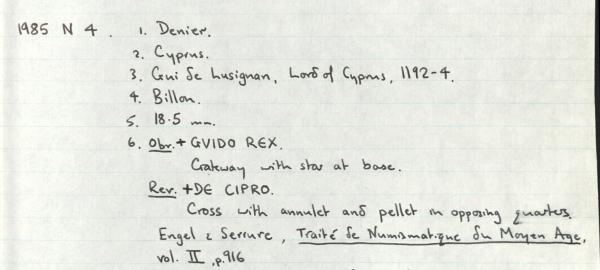 1985 N 4. 1. Denier.
2. Cyprus.
3. Gui de Lusignan, Lord of Cyprus, 1192-4.
4. Billon.
5. 18.5 mm.
6. Obv. + GVIDO REX.
Gateway with star at base.
Rev. +DE CIPRO.
Cross with annulet and pellet in opposing quarters.
Engel & Serrure, Traité de Numismatique du Moyen Age,
vol. II, p.916